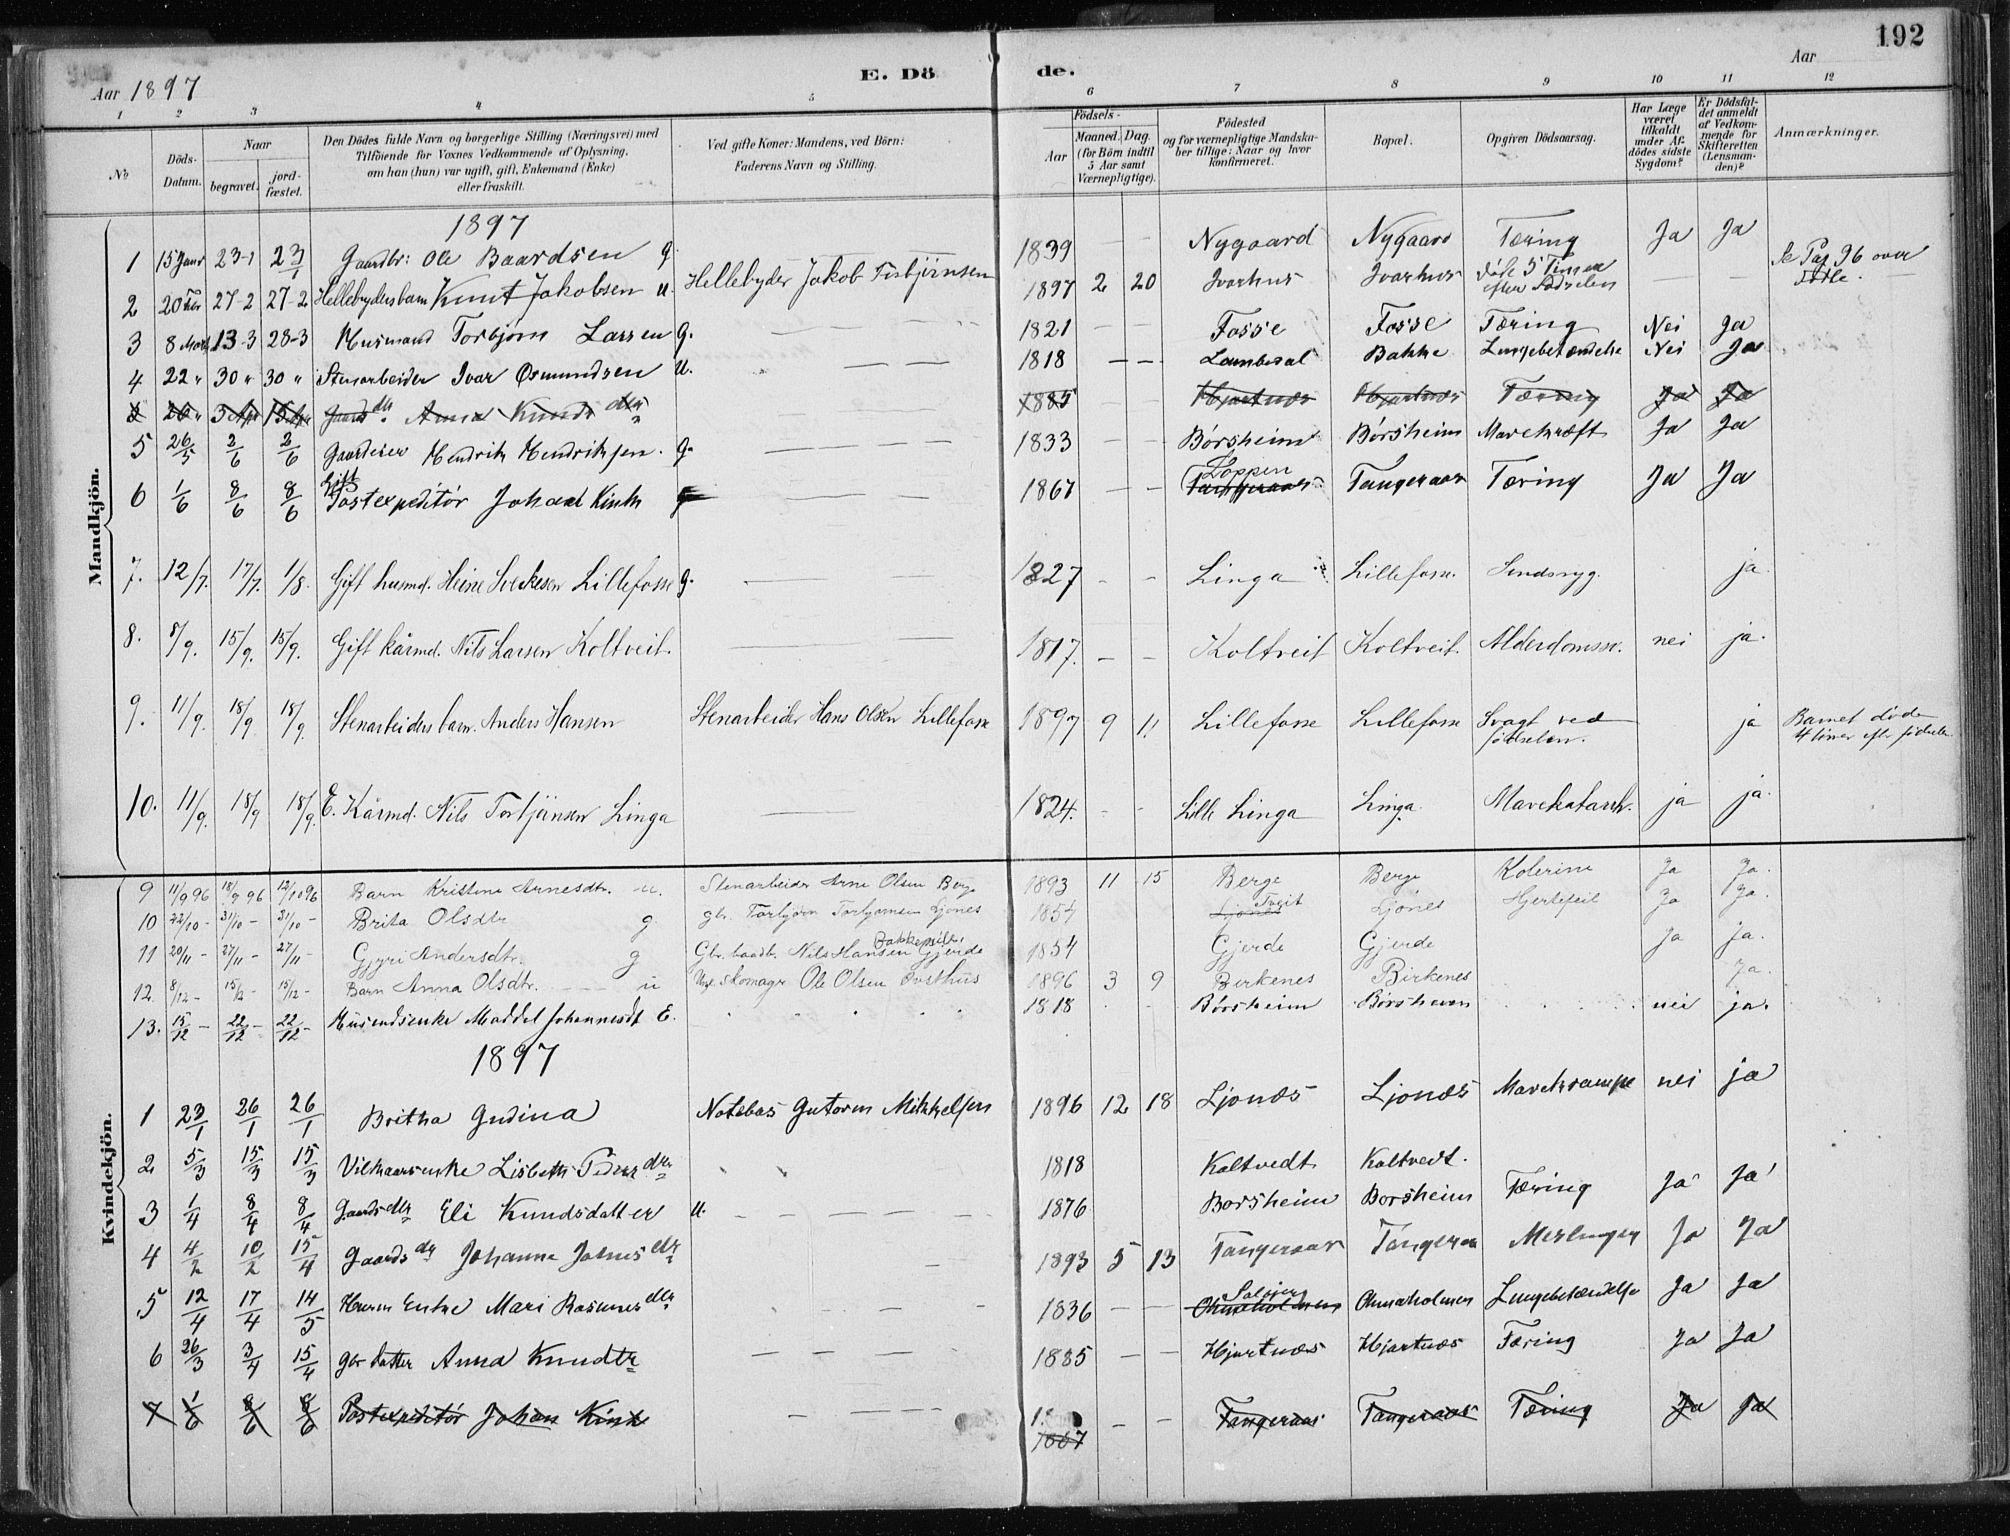 192
E. Döde.
Aar 1897
Aar
1 2 3 4 5 6 7 8 9 10 11 12
No
Döds-Datum.
Naar
begravet.
jord-fæstet.
Den Dödes fulde Navn og borgerlige Stilling (Næringsvei) med
Tilföiende for Voxnes Vedkommende af Oplysning,
om han (hun) var ugift, gift, Enkemand (Enke)
eller fraskilt.
Ved gifte Koner: Mandens, ved Börn:
Faderens Navn og Stilling.
Födsels-
Aar
Maaned. Dag.
(for Börn indtil
5 Aar samt
Værnepligtige).
Födested
og for værnepligtige Mandska-
ber tillige: Naar og hvor
konfirmeret.
Bopæl.
Opgiven Dödsaarsag.
Har Læge
været
tilkaldt
under Af-
dödes sidste
Sygdom?
Er Dödsfal-
det anmeldt
af Vedkom-
mende for
Skifteretten
(Lensman-
den)?
Anmærkninger.
Mandkjön.
1897
1 15 Janr 23-1 23/1 Gaardbr: Ole Baardsen g. 1839 — — Nygaard Nygaard Tæring Ja Ja
2 20 Febr 27-2 27-2 Hellebydersbarn Knut Jakobsen u. Hellebyder Jakob Torbjörnsen 1897 2 20 Ivarhus Ivarhus döde 5 Timer efter Födselen — — Se Pag 96 over Födte.
3 8 Marts 13-3 28-3 Husmand Torbjörn Larsen g. 1821 — — Fosse Fosse Tæring Nei Ja
4 22 " 30 " 30 " Stenarbeider Ivar Osmundsen u. 1818 — — Bakke Lungebetændelse Nei Ja
26 " 3 Apr 15 Apr Gaardsdtr Anna Knudsdtr 1885 Hjartnæs Hjartnæs Tæring Ja Ja
5 26/5 2/6 2/6 Gaardeier Hendrik Hendriksen. g. 1833 — — Börsheim Börsheim Mavekræft Ja Ja
6 1/6 8/6 8/6 Gift Postexpeditör Johan Kink 1867 — — Loppen Tangeraas Tangeraas Tæring Ja Ja
7. 12/7. 17/7. 1/8. Gift husmd. Heine Lillefosse g. 1827 - - Linga Lillefosse. Sindssyg. ja.
8. 8/9. 15/9. 15/9. Gift kårmd. Nils Larsen Koltveit. 1817. — — Koltveit Koltveit. Alderdomssv. nei ja.
9. 11/9. 18/9 18/9 Stenarbeiders barn. Anders Hansen Stenarbeider Hans Olsen Lillefosse 1897 9 11 Lillefosse Lillefosse Svagt ved födselen. ja Barnet döde 4 timer efter födselen
10. 11/9. 18/9 18/9. E. Kårmd. Nils Torbjörnsen Linga 1824. - - Lille Linga Linga. Mavekatarrh. ja ja.
Kvindekjön.
9 11/9 96 18/9 96 12/10 96 Barn Kristine Arnesdtr. u. Stenarbeider Arne Olsen Berge 1893 11 15 Berge Berge Kolerine Ja Ja.
10 22/10 - 31/10 - 31/10 - Brita Olsdtr g. gbr. Torbjörn Torbjörnsen Ljönes 1854 Ljönes Tveit Ljönes Hjertefeil Ja Ja.
11 20/11 - 27/11 - 27/11 - Gyri Andersdtr. g Gbr. Nils Hansen Gjerde 1854 Gjerde Gjerde Ja Ja.
12. 8/12 - 15/12 - 15/12 - Barn Anna Olsdtr. u Skomager Ole Olsen Övsthus 1896 3 9 Birkenes Birkenes Ja.
13. 15/12 - 22/12 - 22/12 - Husmdsenke Maddel Johannesdt E. 1818 Börsheim Börsheim nei ja.
1897
1 23/1 26/1 26/1 Britha Gudina Notebas Gutorm Mikkelsen 1896 12 18 Ljonæs Ljonæs Mavekrampe nei ja
2 5/3 15/3 15/3 Vilkaarsenke Lisbeth Pedersdtr 1818 Koltvedt Koltvedt.
3 1/4 8/4 8/4 Gaardsdtr Eli Knudsdatter u. 1876 Borsheim Borsheim Tæring Ja Ja
4 4/2 10/2 15/4 Gaardsdtr Johanna Johnsdtr 1893 5 13 Tangeraas Tangeraas Meslinger Ja Ja
5 12/4 17/4 14/5 Husm Enke Mari Rasmusdtr 1836 — — Omaholmen Omaholmen Lungebetændelse Ja Ja
6 26/3 3/4 15/4 gbr datter Anna Knudtr 1885 — — Hjartnæs Hjartnæs Tæring Ja Ja
7 1/6 8/6 8/6 Postexpeditör Johan Kink 1867 — — Tangeraas Tangeraas Tæring Ja Ja